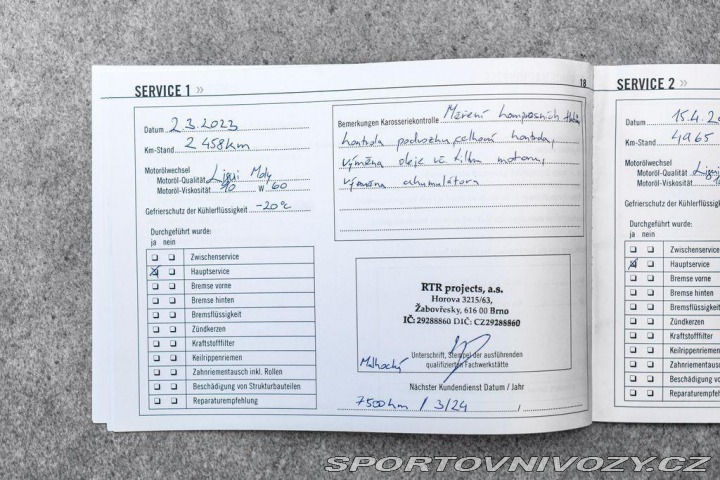 SERVICE 1 »
18
Datum 2.3.2023
Km-Stand 2 458km
Motorölwechsel
Motoröl-Qualität Liqui Moly
Motoröl-Viskosität 10 W 60
Gefrierschutz der Kühlerflüssigkeit -20°C
Durchgeführt wurde:
ja nein
Zwischenservice
Hauptservice
Bremse vorne
Bremse hinten
Bremsflüssigkeit
Zündkerzen
Kraftstofffilter
Keilrippenriemen
Zahnriementausch inkl. Rollen
Beschädigung von Strukturbauteilen
Reparaturempfehlung
Bemerkungen Karosseriekontrolle Měření kompresních tlaků,
kontrola podvozku, celková kontrola,
výměna oleje vč. filtru motoru,
výměna akumulátoru
RTR projects, a.s.
Horova 3215/63,
Žabovřesky, 616 00 Brno
IČ: 29288860 DIČ: CZ29288860
Unterschrift, Stempel der ausführenden
qualifizierten Fachwerkstätte
Nächster Kundendienst Datum / Jahr
7500km / 3/24
SERVICE 2 »
Datum 15.4.20
Km-Stand 4965
Motorölwechsel
Motoröl-Qualität
Motoröl-Viskosität
Gefrierschutz der Kühlerflüssigkeit
Durchgeführt wurde:
ja nein
Zwischenservice
Hauptservice
Bremse vorne
Bremse hinten
Bremsflüssigkeit
Zündkerzen
Kraftstofffilter
Keilrippenriemen
Zahnriementausch in
Beschädigung von S
Reparaturempfehl
SPORTOVNIVOZY.CZ